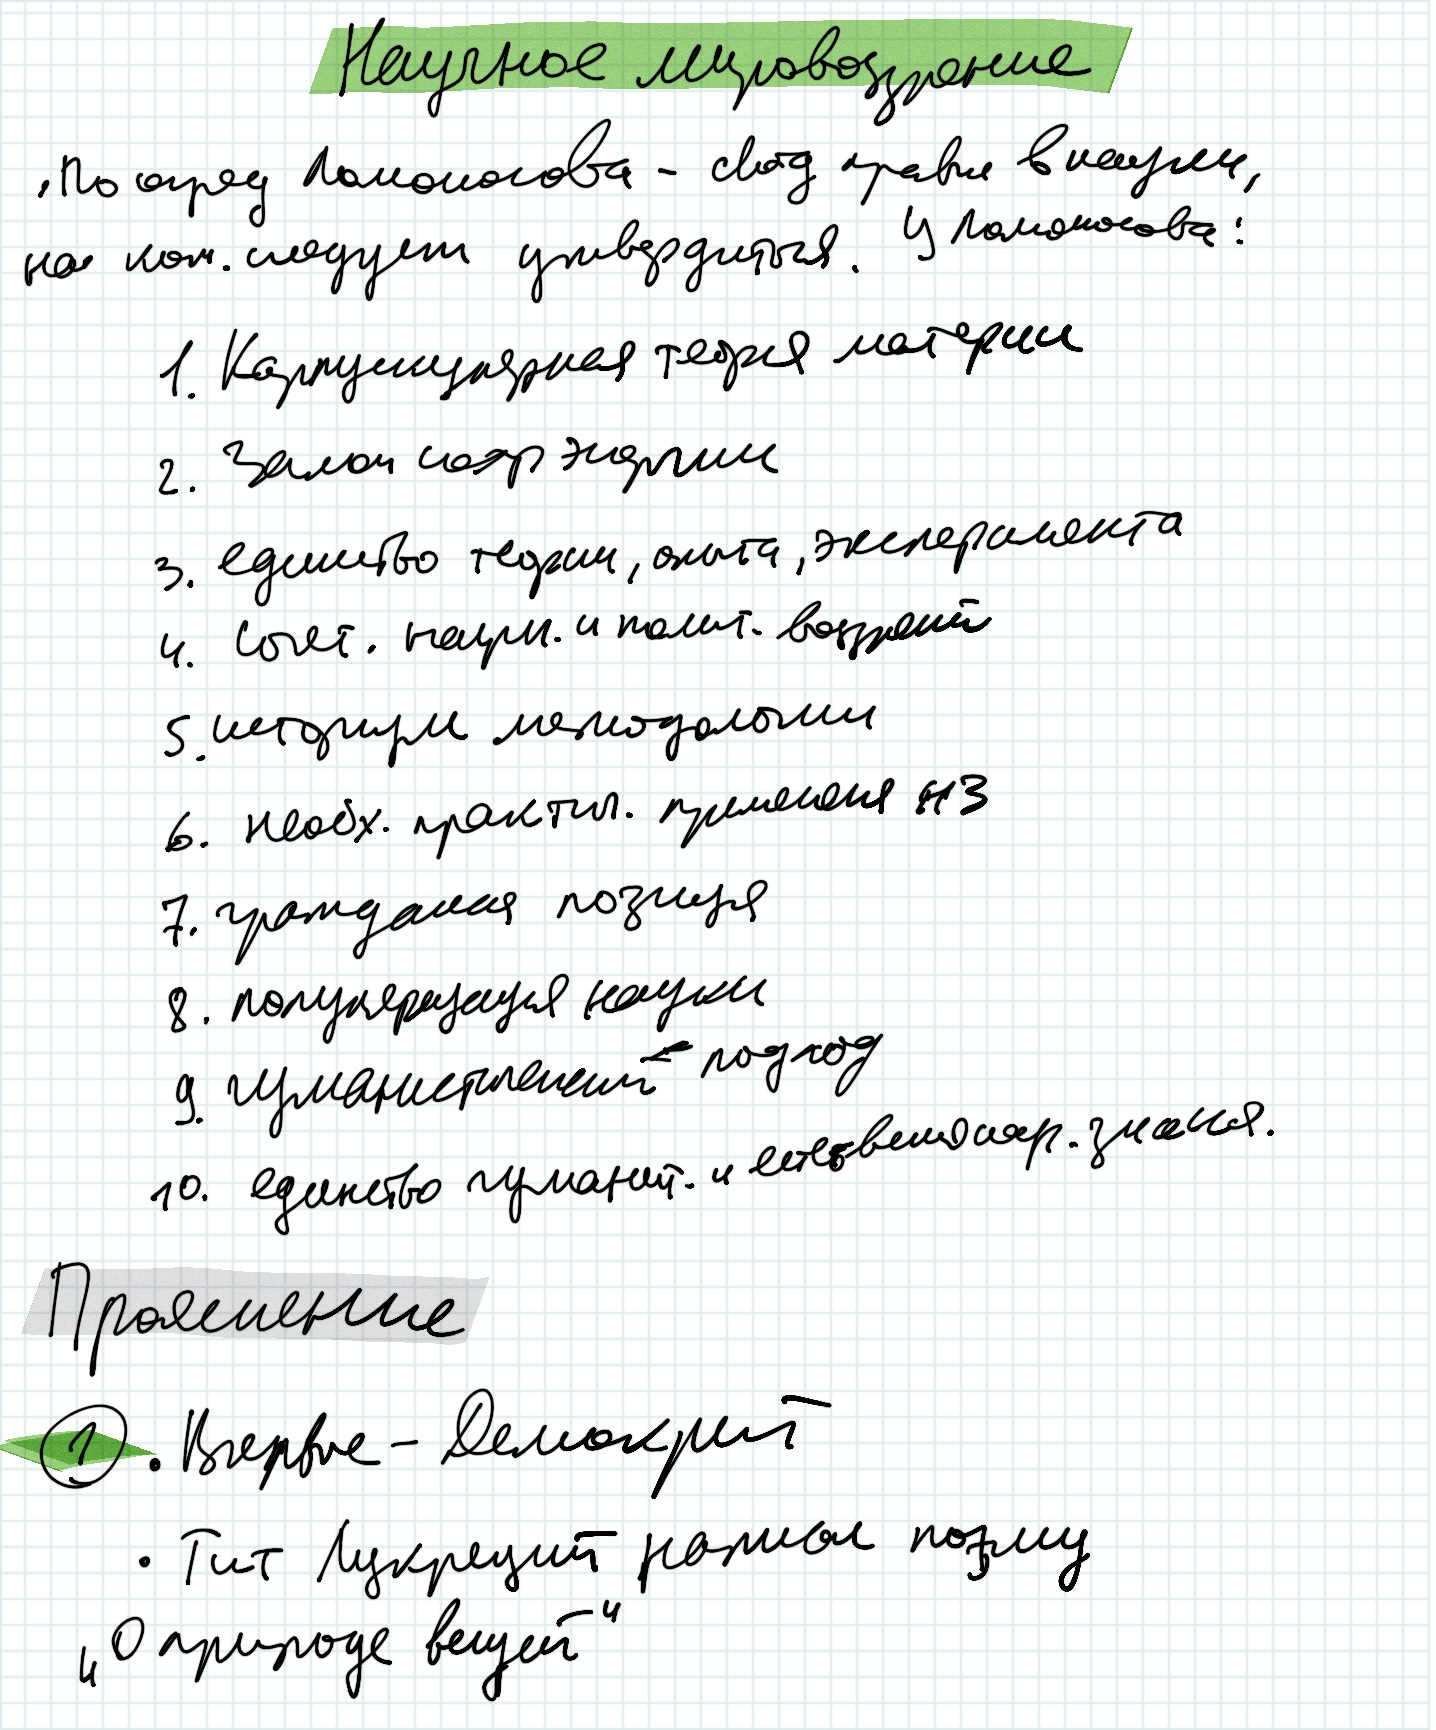 Научное мировоззрение
По опред Ломоносова – свод правил в науки,
на кот. следует утвердиться. У Ломоносова:
1. Карпускулярная теория материи
2. Закон сохр энергии
3. единство теории, опыта, эксперимента
4. Сочет. научн. и полит. воззрений
5. историзм методологии
6. необх. практич. применения НЗ
7. гражданская позиция
8. популяризация науки
9. гуманистический подход
10. единство гуманит. и естественнонауч. знания.
Прояснение
1 • Впервые – Демокрит
• Тит Лукреций написал поэму
„О природе вещей“